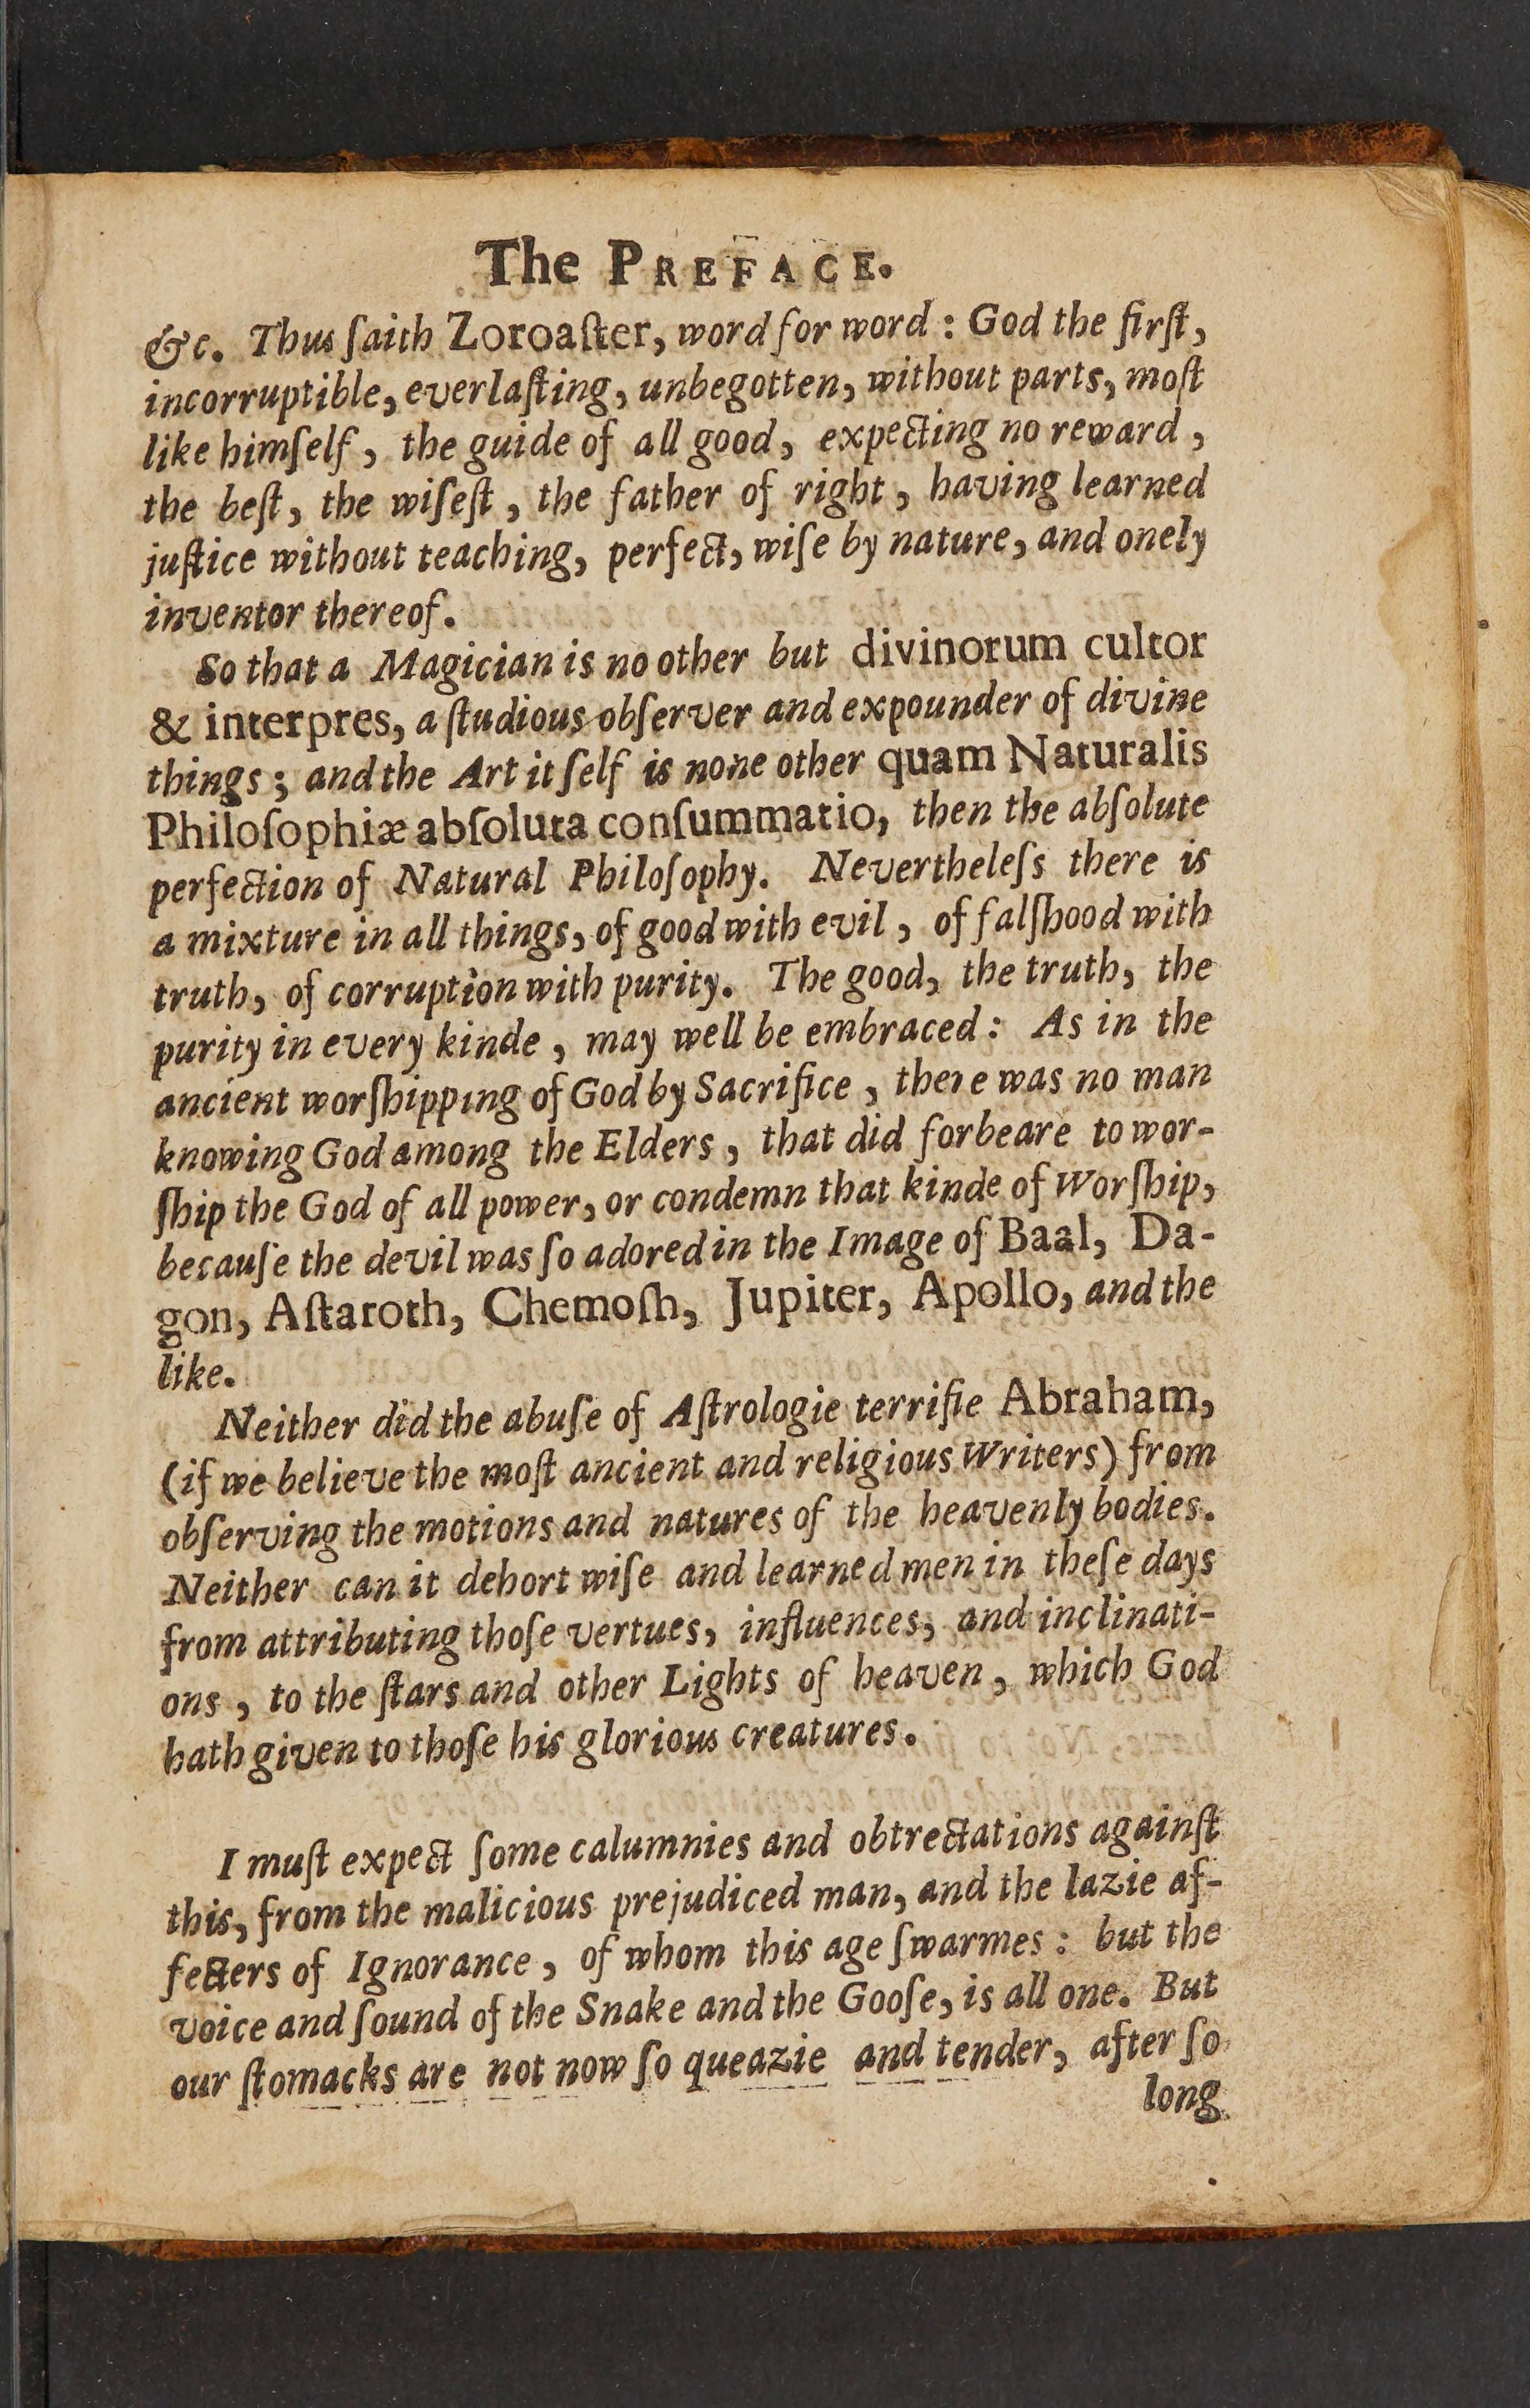 The PREFACE.
&c. Thus ſaith Zoroaſter, word for word : God the firſt,
incorruptible, everlaſting, unbegotten, without parts, moſt
like himſelf, the guide of all good, expecting no reward,
the beſt, the wiſeſt, the father of right, having learned
juſtice without teaching, perfect, wiſe by nature, and onely
inventor thereof.
So that a Magician is no other but divinorum cultor
& interpres, a ſtudious obſerver and expounder of divine
things; and the Art it ſelf is none other quam Naturalis
Philoſophiæ abſoluta conſummatio, then the abſolute
perfection of Natural Philoſophy. Nevertheleſs there is
a mixture in all things, of good with evil, of falſhood with
truth, of corruption with purity. The good, the truth, the
purity in every kinde, may well be embraced: As in the
ancient worſhipping of God by Sacrifice, there was no man
knowing God among the Elders, that did forbeare to wor-
ſhip the God of all power, or condemn that kinde of Worſhip,
becauſe the devil was ſo adored in the Image of Baal, Da-
gon, Aſtaroth, Chemoſh, Jupiter, Apollo, and the
like.
Neither did the abuſe of Aſtrologie terrifie Abraham,
(if we believe the moſt ancient and religious Writers) from
obſerving the motions and natures of the heavenly bodies.
Neither can it dehort wiſe and learned men in theſe days
from attributing thoſe vertues, influences, and inclinati-
ons, to the ſtars and other Lights of heaven, which God
hath given to thoſe his glorious creatures.
I muſt expect ſome calumnies and obtrectations againſt
this, from the malicious prejudiced man, and the lazie af-
fecters of Ignorance, of whom this age ſwarmes: but the
voice and ſound of the Snake and the Gooſe, is all one. But
our ſtomacks are not now ſo queazie and tender, after ſo
long